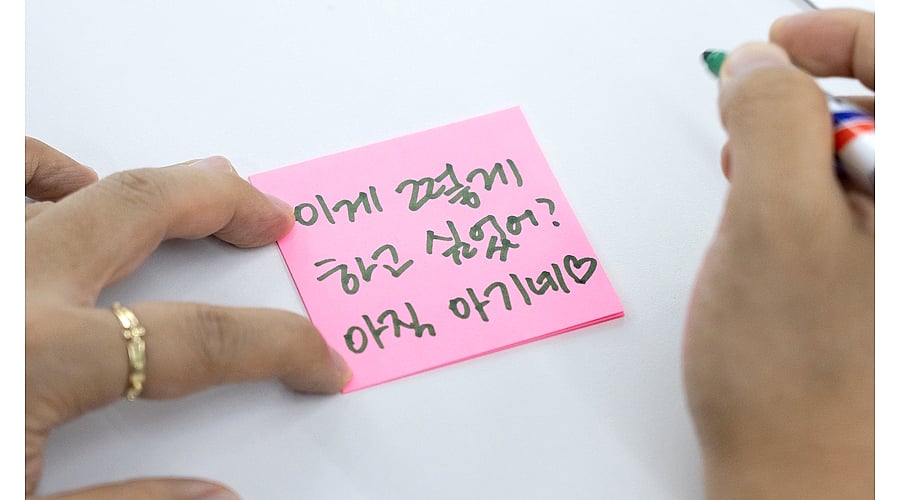 이게 그렇게
하고 싶었어?
아직 아기네♡